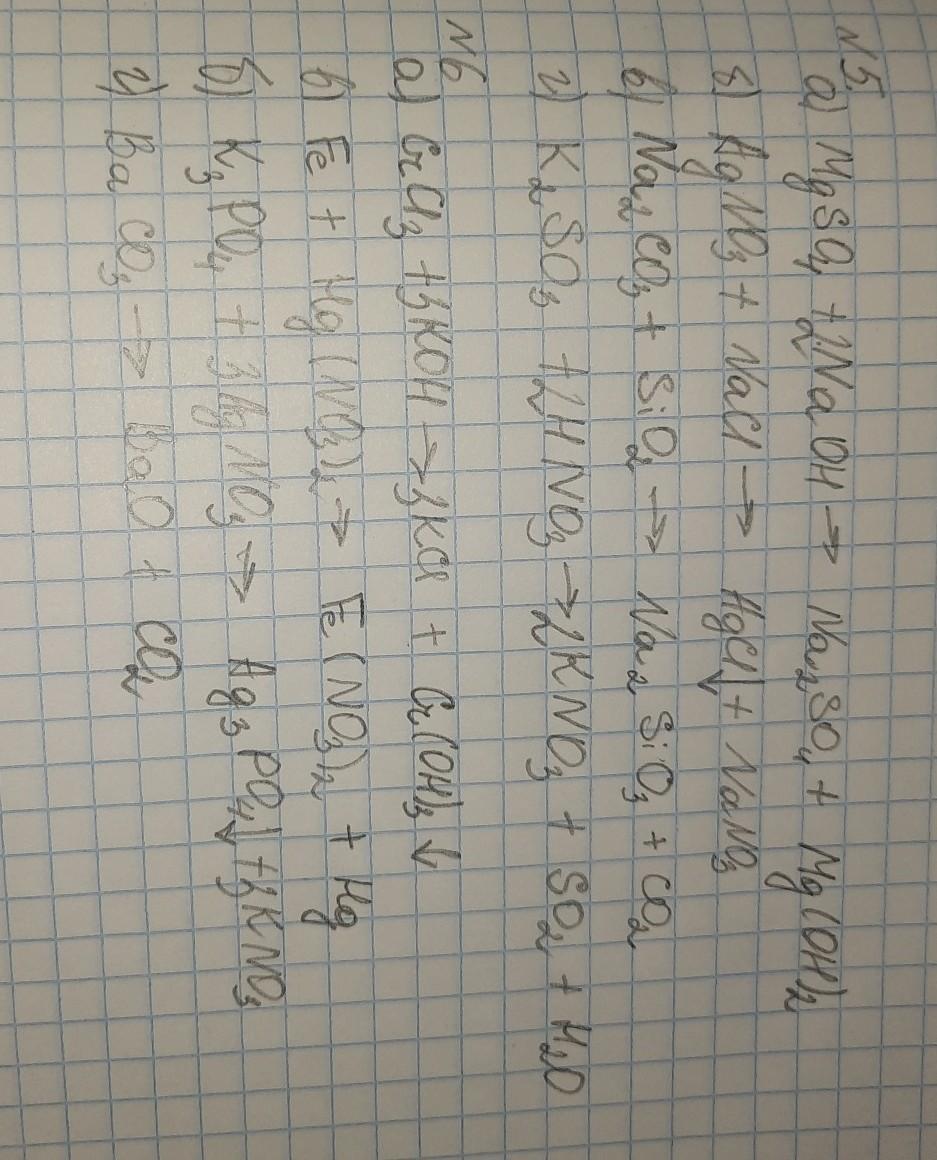 N5
а) MgSO₄ + 2NaOH → Na₂SO₄ + Mg(OH)₂
б) AgNO₃ + NaCl → AgCl↓ + NaNO₃
в) Na₂CO₃ + SiO₂ → Na₂SiO₃ + CO₂
г) K₂SO₃ + 2HNO₃ → 2KNO₃ + SO₂ + H₂O
N6
а) CrCl₃ + 3KOH → 3KCl + Cr(OH)₃↓
в) Fe + Hg(NO₃)₂ → Fe(NO₃)₂ + Hg
б) K₃PO₄ + 3AgNO₃ → Ag₃PO₄↓ + 3KNO₃
г) BaCO₃ → BaO + CO₂